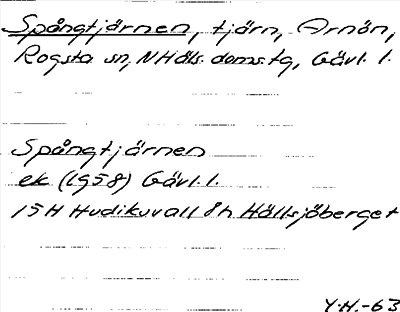 Spångtjärnen, tjärn, Arnön,
Rogsta sn, NHäls. doms.tg, Gävl. l.
Spångtjärnen
ek (1958) Gävl. l.
15H Hudikuvall 8h Hällsjöberget
Y.H.-63